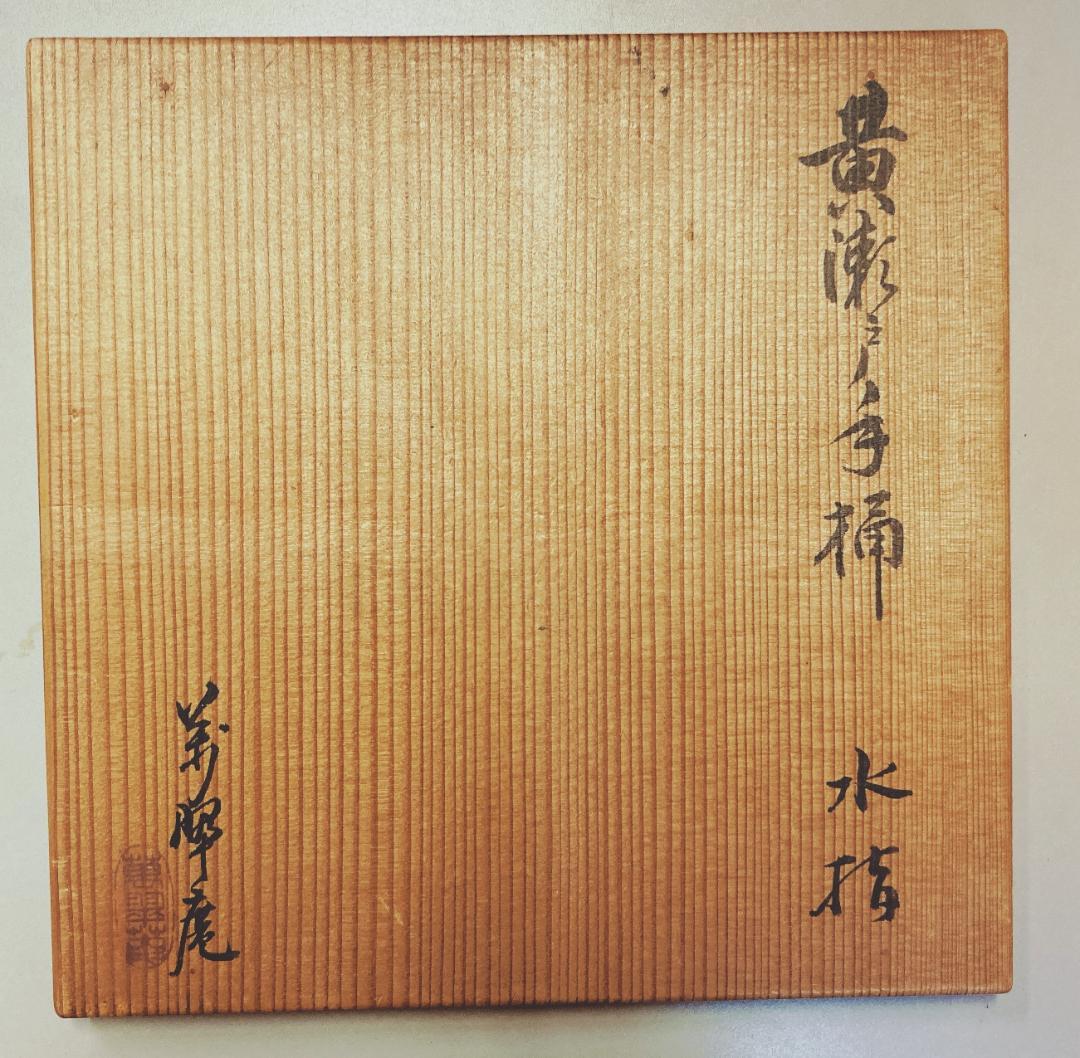 黄瀬戸手桶 水指
萬 庵